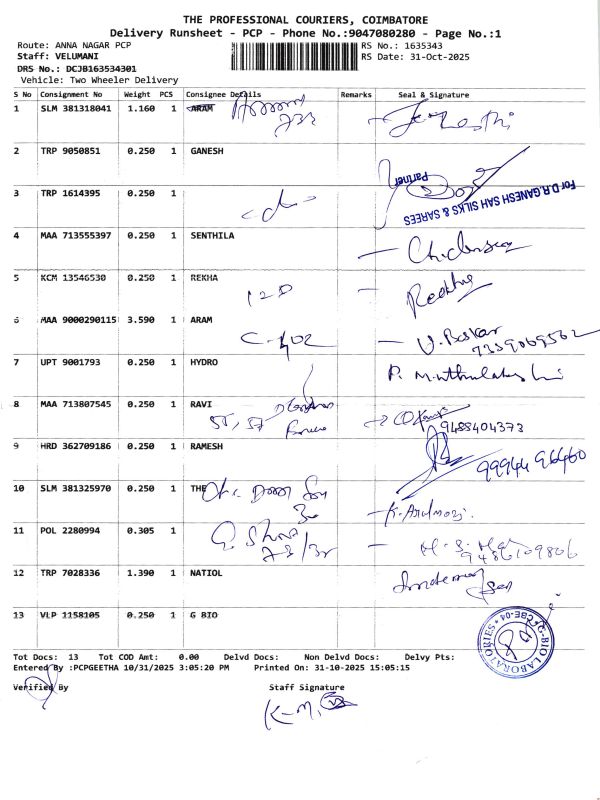 THE PROFESSIONAL COURIERS, COIMBATORE
Delivery Runsheet - PCP - Phone No.:9047080280 - Page No.:1
Route: ANNA NAGAR PCP RS No.: 1635343
Staff: VELUMANI RS Date: 31-Oct-2025
DRS No.: DCJB163534301
Vehicle: Two Wheeler Delivery
S No Consignment No Weight PCS Consignee Details Remarks Seal & Signature
1 SLM 381318041 1.160 1 ARAM
2 TRP 9050851 0.250 1 GANESH
Partner
For D.R.GANESH SAH SILKS & SAREES
3 TRP 1614395 0.250 1
4 MAA 713555397 0.250 1 SENTHILA
5 KCM 13546530 0.250 1 REKHA
120 Rekha
6 MAA 9000290115 3.590 1 ARAM
C-402 U. Baskar
7359069562
7 UPT 9001793 0.250 1 HYDRO
P. Muthulakshmi
8 MAA 713807545 0.250 1 RAVI
9488404373
9 HRD 362709186 0.250 1 RAMESH
99944 96460
10 SLM 381325970 0.250 1 THE
K. Arulmozi.
11 POL 2280994 0.305 1
9486109806
12 TRP 7028336 1.390 1 NATIOL
13 VLP 1158105 0.250 1 G BIO
G-BIO LABORATORIES * CBE-04 *
Tot Docs: 13 Tot COD Amt: 0.00 Delvd Docs: Non Delvd Docs: Delvy Pts:
Entered By :PCPGEETHA 10/31/2025 3:05:20 PM Printed On: 31-10-2025 15:05:15
Verified By Staff Signature
K-M,